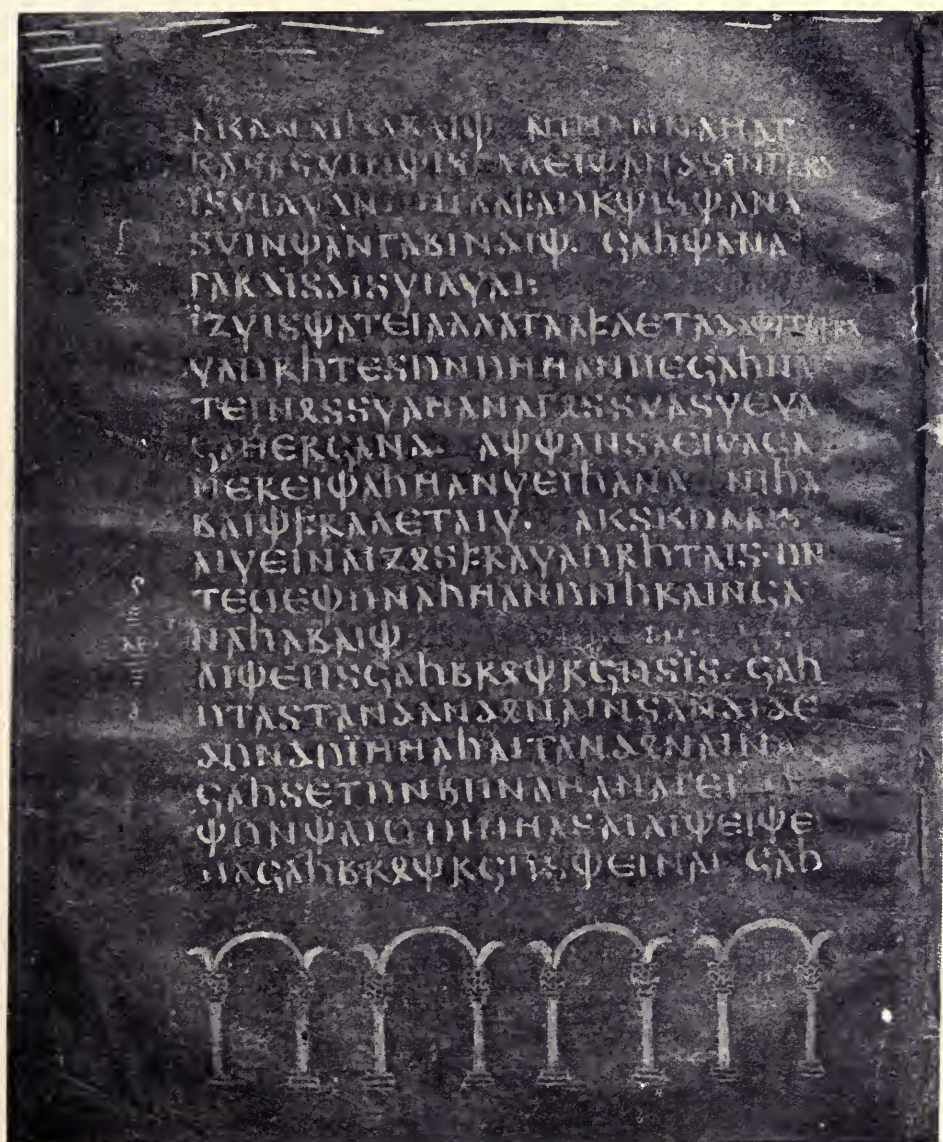 𐌰𐌺 𐌰𐌽𐌳𐌹 𐌷𐌰𐌱𐌰𐌹𐌸 · 𐌽𐌹 𐌼𐌰𐌽𐌽𐌰 𐌼𐌰𐌲
𐌺𐌰𐍃𐌰 𐍃𐍅𐌹𐌽𐌸𐌹𐍃 𐌲𐌰𐌻𐌴𐌹𐌸𐌰𐌽𐌳𐍃 𐌹𐌽 𐌲𐌰𐍂𐌳
𐌹̈𐍃 𐍅𐌹𐌻𐍅𐌰𐌽 𐌽𐌹𐌱𐌰 𐍆𐌰𐌿𐍂𐌸𐌹𐍃 𐌸𐌰𐌽𐌰
𐍃𐍅𐌹𐌽𐌸𐌰𐌽 𐌲𐌰𐌱𐌹𐌽𐌳𐌹𐌸 · 𐌾𐌰𐌷 𐌸𐌰𐌽𐌰
𐌲𐌰𐍂𐌳 𐌹̈𐍃 𐌳𐌹𐍃𐍅𐌹𐌻𐍅𐌰𐌹:
𐌹̈𐌶𐍅𐌹𐍃 𐌸𐌰𐍄𐌴𐌹 𐌰𐌻𐌻𐌰𐍄𐌰 𐌰𐍆𐌻𐌴𐍄𐌰𐌳𐌰 𐌸𐌰𐍄𐌰 𐍆𐍂𐌰
𐍅𐌰𐌿𐍂𐌷𐍄𐌴 𐍃𐌿𐌽𐌿𐌼 𐌼𐌰𐌽𐌽𐌴 𐌾𐌰𐌷 𐌽𐌰𐌹
𐍄𐌴𐌹𐌽𐍉𐍃 𐍃𐍅𐌰 𐌼𐌰𐌽𐌰𐌲𐍉𐍃 𐍃𐍅𐌰𐍃𐍅𐌴 𐍅𐌰
𐌾𐌰𐌼𐌴𐍂𐌾𐌰𐌽𐌳 · 𐌰𐌸𐌸𐌰𐌽 𐍃𐌰𐌴𐌹 𐍅𐌰𐌾𐌰
𐌼𐌴𐍂𐌴𐌹𐌸 𐌰𐌷𐌼𐌰𐌽 𐍅𐌴𐌹𐌷𐌰𐌽𐌰 𐌽𐌹 𐌷𐌰
𐌱𐌰𐌹𐌸 𐍆𐍂𐌰𐌻𐌴𐍄 𐌰𐌹𐍅 · 𐌰𐌺 𐍃𐌺𐌿𐌻𐌰 𐌹̈𐍃𐍄
𐌰𐌹𐍅𐌴𐌹𐌽𐌰𐌹𐌶𐍉𐍃 𐍆𐍂𐌰𐍅𐌰𐌿𐍂𐌷𐍄𐌰𐌹𐍃 · 𐌿𐌽
𐍄𐌴 𐌵𐌴𐌸𐌿𐌽 𐌰𐌷𐌼𐌰𐌽 𐌿𐌽𐌷𐍂𐌰𐌹𐌽𐌾𐌰
𐌽𐌰 𐌷𐌰𐌱𐌰𐌹𐌸
𐌰𐌹𐌸𐌴𐌹 𐌹̈𐍃 𐌾𐌰𐌷 𐌱𐍂𐍉𐌸𐍂𐌾𐌿𐍃 𐌹̈𐍃 · 𐌾𐌰𐌷
𐌿𐍄𐌰 𐍃𐍄𐌰𐌽𐌳𐌰𐌽𐌳𐍉𐌽𐌰 𐌹𐌽𐍃𐌰𐌽𐌳𐌹𐌳𐌴
𐌳𐌿𐌽 𐌳𐌿 𐌹̈𐌼𐌼𐌰 𐌷𐌰𐌹𐍄𐌰𐌽𐌳𐍉𐌽𐌰 𐌹𐌽𐌰
𐌾𐌰𐌷 𐍃𐌴𐍄𐌿𐌽 𐌱𐌹 𐌹𐌽𐌰 𐌼𐌰𐌽𐌰𐌲𐌴𐌹 𐌵𐌴
𐌸𐌿𐌽 𐌸𐌰𐌽 𐌳𐌿 𐌹̈𐌼𐌼𐌰 𐍃𐌰𐌹 𐌰𐌹𐌸𐌴𐌹 𐌸𐌴𐌹
𐌽𐌰 𐌾𐌰𐌷 𐌱𐍂𐍉𐌸𐍂𐌾𐌿𐍃 𐌸𐌴𐌹𐌽𐌰𐌹 𐌾𐌰𐌷